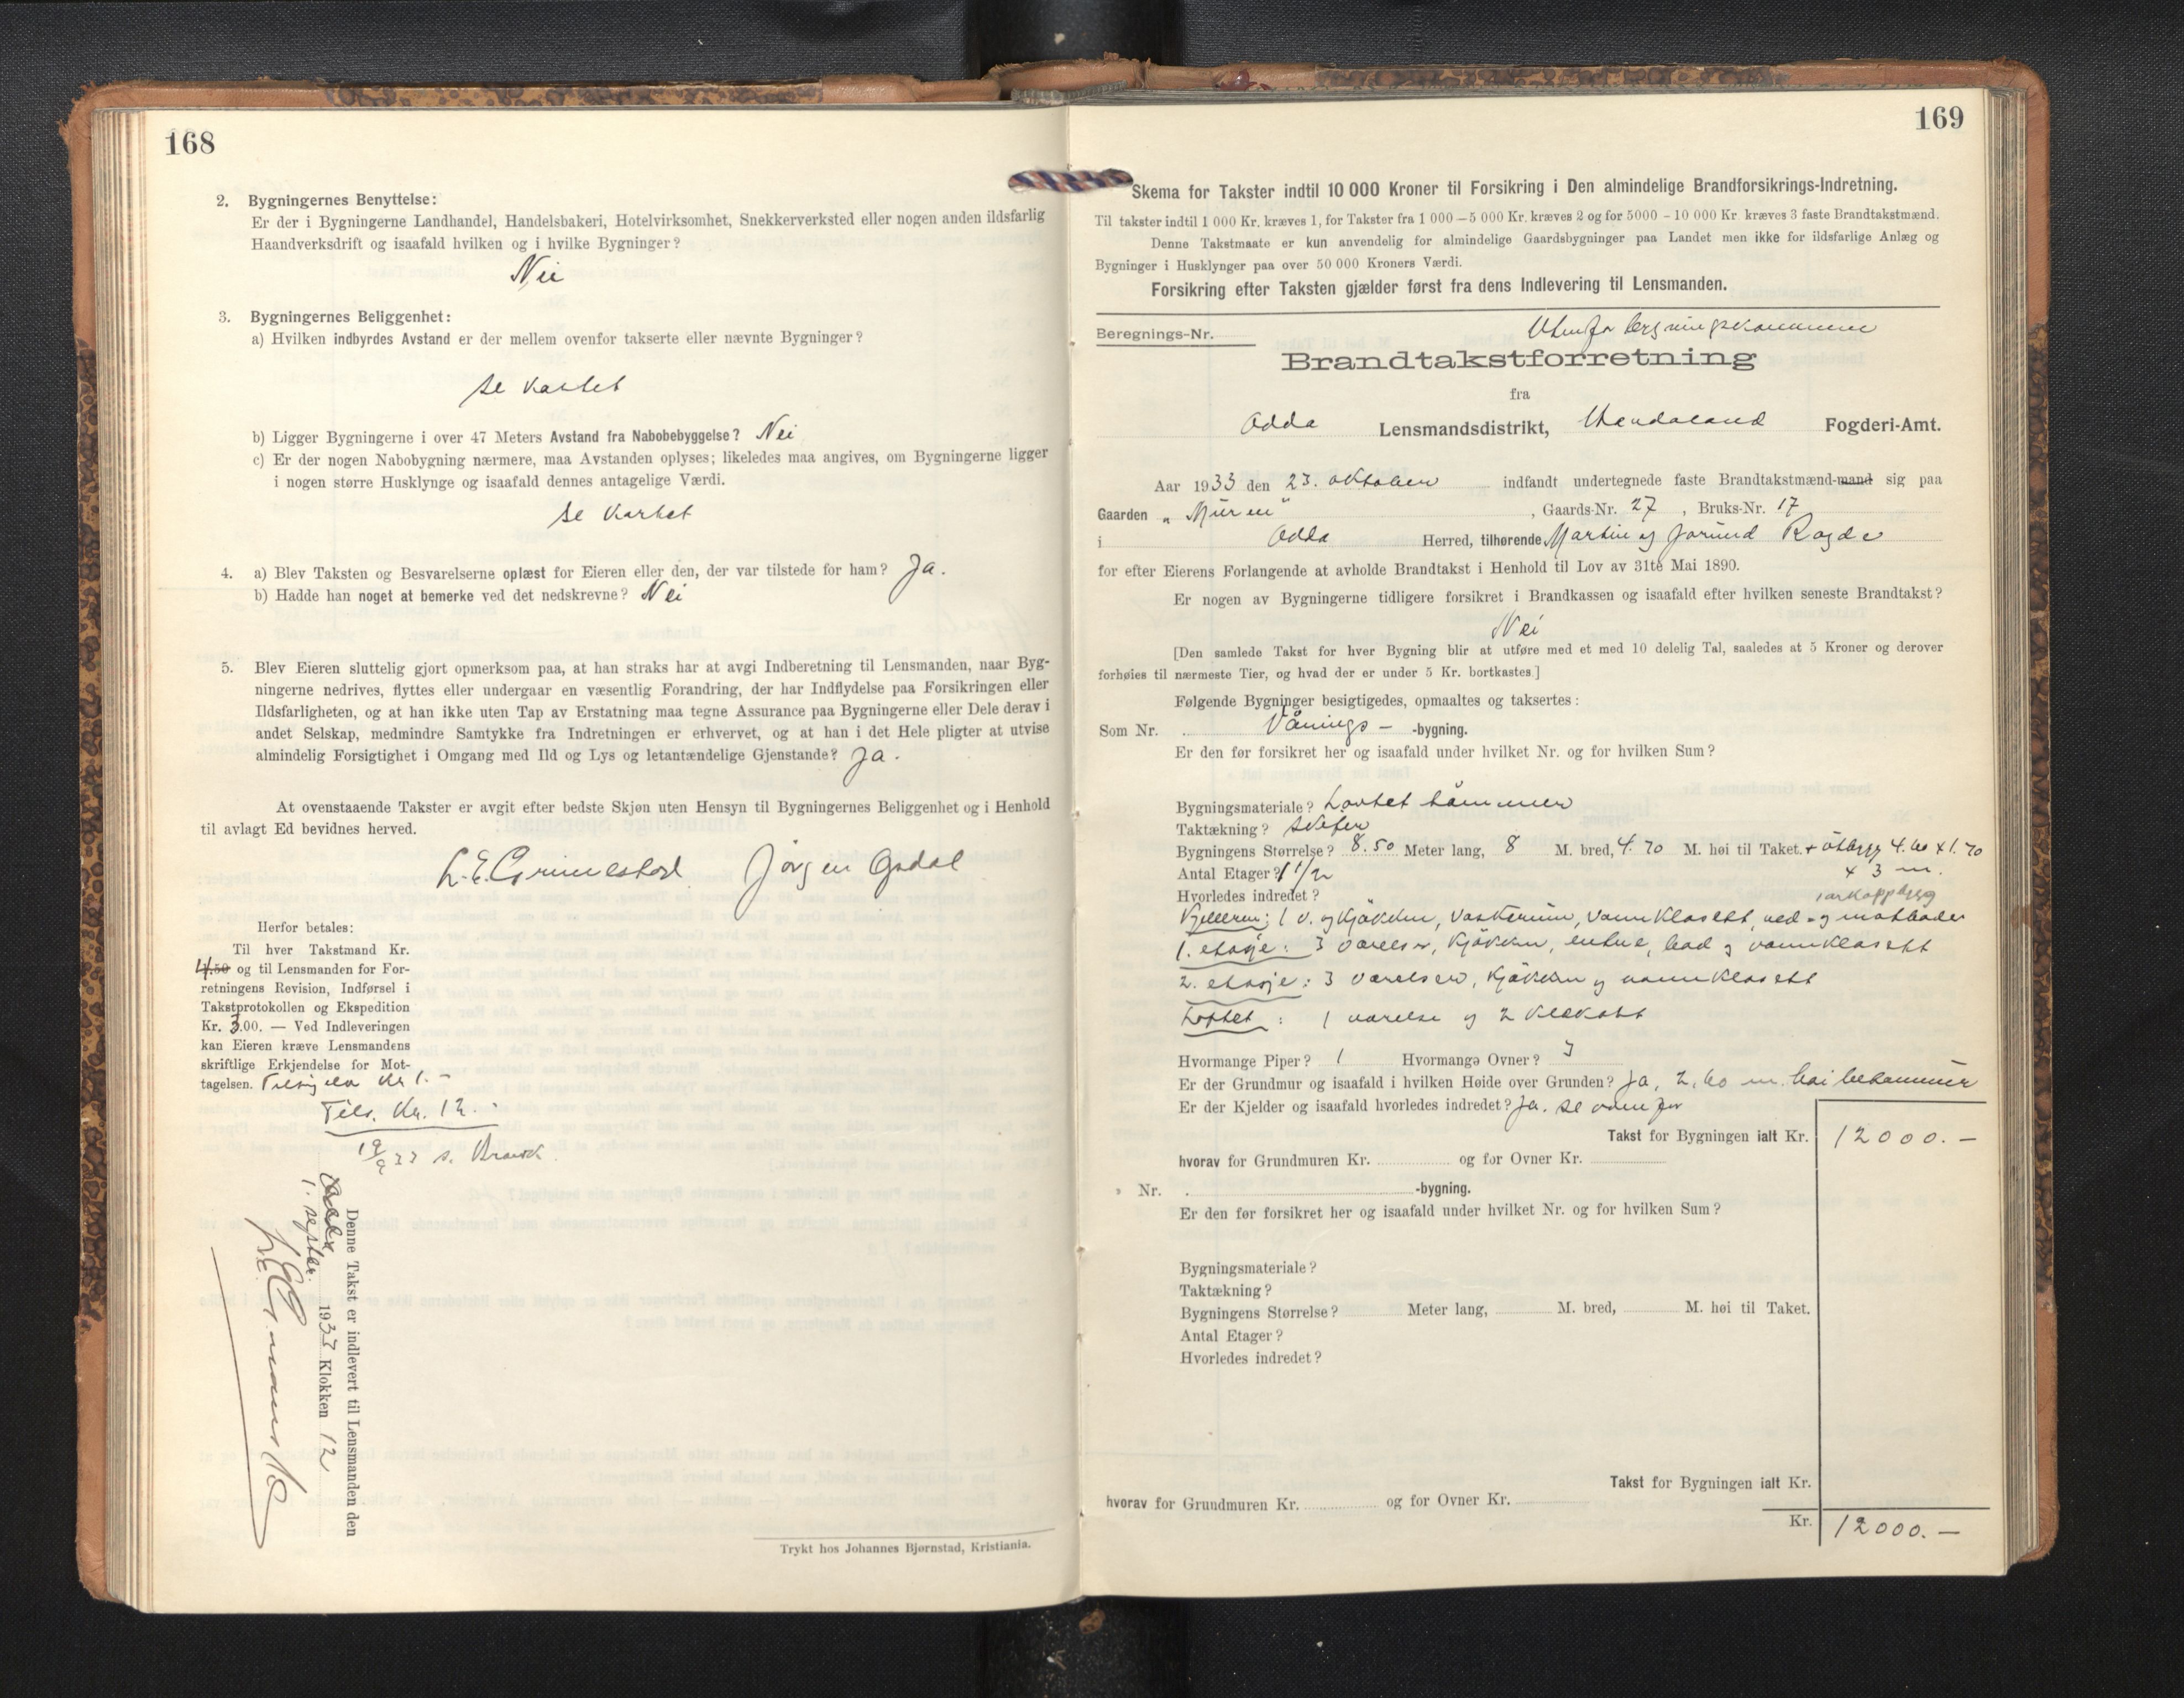 168
2. Bygningernes Benyttelse:
Er der i Bygningerne Landhandel, Handelsbakeri, Hotelvirksomhet, Snekkerverksted eller nogen anden ildsfarlig
Haandverksdrift og isaafald hvilken og i hvilke Bygninger?
Nei
3. Bygningernes Beliggenhet:
a) Hvilken indbyrdes Avstand er der mellem ovenfor takserte eller nævnte Bygninger?
se kartet
b) Ligger Bygningerne i over 47 Meters Avstand fra Nabobebyggelse? Nei
c) Er der nogen Nabobygning nærmere, maa Avstanden oplyses; likeledes maa angives, om Bygningerne ligger
i nogen større Husklynge og isaafald dennes antagelige Værdi.
se kartet
4. a) Blev Taksten og Besvarelserne oplæst for Eieren eller den, der var tilstede for ham? Ja.
b) Hadde han noget at bemerke ved det nedskrevne? Nei
5. Blev Eieren sluttelig gjort opmerksom paa, at han straks har at avgi Indberetning til Lensmanden, naar Byg-
ningerne nedrives, flyttes eller undergaar en væsentlig Forandring, der har Indflydelse paa Forsikringen eller
Ildsfarligheten, og at han ikke uten Tap av Erstatning maa tegne Assurance paa Bygningerne eller Dele derav i
andet Selskap, medmindre Samtykke fra Indretningen er erhvervet, og at han i det Hele pligter at utvise
almindelig Forsigtighet i Omgang med Ild og Lys og letantændelige Gjenstande? Ja.
At ovenstaaende Takster er avgit efter bedste Skjøn uten Hensyn til Bygningernes Beliggenhet og i Henhold
til avlagt Ed bevidnes herved.
L. E. Grimestad Jørgen Opdal
Herfor betales:
Til hver Takstmand Kr.
4.50 og til Lensmanden for For-
retningens Revision, Indførsel i
Takstprotokollen og Ekspedition
Kr. 3.00. — Ved Indleveringen
kan Eieren kræve Lensmandens
skriftlige Erkjendelse for Mot-
tagelsen. Kr 1.-
Tils. Kr. 12.-
19/9 33
Denne Takst er indlevert til Lensmanden den
1. septbr. 1933 Klokken 12
Trykt hos Johannes Bjørnstad, Kristiania.
169
Skema for Takster indtil 10 000 Kroner til Forsikring i Den almindelige Brandforsikrings-Indretning.
Til takster indtil 1 000 Kr. kræves 1, for Takster fra 1 000 — 5 000 Kr. kræves 2 og for 5000 – 10 000 Kr kræves 3 faste Brandtakstmænd.
Denne Takstmaate er kun anvendelig for almindelige Gaardsbygninger paa Landet men ikke for ildsfarlige Anlæg og
Bygninger i Husklynger paa over 50 000 Kroners Værdi.
Forsikring efter Taksten gjælder først fra dens Indlevering til Lensmanden.
Beregnings-Nr. Utenfor bygningskommunen
Brandtakstforretning
fra
Odda Lensmandsdistrikt, Hordaland Fogderi-Amt.
Aar 1933 den 23. oktober indfandt undertegnede faste Brandtakstmænd-mand sig paa
Gaarden „Muren" , Gaards-Nr. 27 , Bruks-Nr. 17
i Odda Herred, tilhørende Martin og Jorund Ragde
for efter Eierens Forlangende at avholde Brandtakst i Henhold til Lov av 31te Mai 1890.
Er nogen av Bygningerne tidligere forsikret i Brandkassen og isaafald efter hvilken seneste Brandtakst?
Nei
[Den samlede Takst for hver Bygning blir at utføre med et med 10 delelig Tal, saaledes at 5 Kroner og derover
forhøies til nærmeste Tier, og hvad der er under 5 Kr. bortkastes.]
Følgende Bygninger besigtigedes, opmaaltes og taksertes:
Som Nr. Vånings- -bygning.
Er den før forsikret her og isaafald under hvilket Nr. og for hvilken Sum?
Bygningsmateriale? Laftet tømmer
Taktækning? skifer
Bygningens Størrelse? 8.50 Meter lang, 8 M. bred, 4.70 M. høi til Taket. + utbygg 4.60 x 1.70
Antal Etager? 1 1/2 x 3 m.
Hvorledes indredet? i arkoppbygg
Kjelleren: 1 v. og kjøkken, vaskerum, vannklosett, ved- og matboder
1. etasje: 3 værelser, kjøkken, entre, bad og vannklosett
2. etasje: 3 værelser, kjøkken og vannklosett
Loftet: 1 værelse og 2 klekott
Hvormange Piper? 1 Hvormange Ovner? 3
Er der Grundmur og isaafald i hvilken Høide over Grunden? Ja, 2,60 m. høi betongmur
Er der Kjelder og isaafald hvorledes indredet? Ja. se ovenfor
Takst for Bygningen ialt Kr. 12000.—
hvorav for Grundmuren Kr. og for Ovner Kr.
Nr. -bygning.
Er den før forsikret her og isaafald under hvilket Nr. og for hvilken Sum?
Bygningsmateriale?
Taktækning?
Bygningens Størrelse? Meter lang, M. bred, M. høi til Taket.
Antal Etager?
Hvorledes indredet?
Takst for Bygningen ialt Kr.
hvorav for Grundmuren Kr. og for Ovner Kr.
Kr. 12000.—